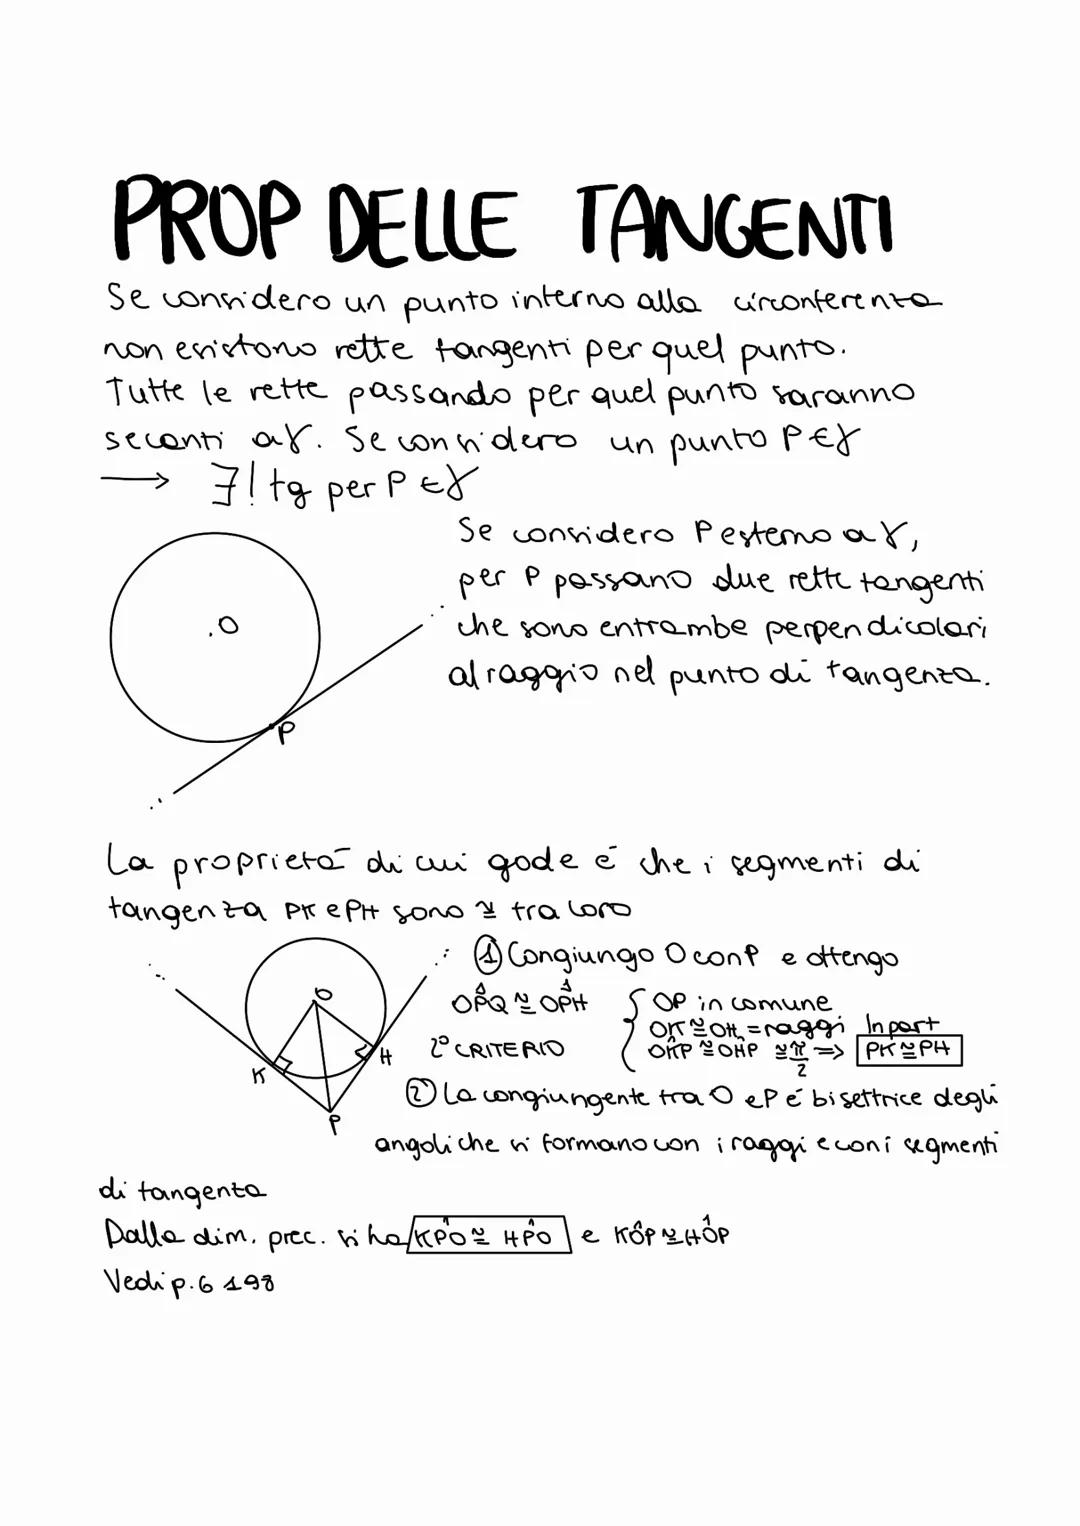 PROP DELLE TANGENTI
Se considero un punto interno alla circonferenza
non esistono rette tangenti per quel punto.
Tutte le rette passando per quel punto saranno
secanti a γ. Se considero un punto P ∈ γ
→ ∃! tg per P ∈ γ
Se considero P esterno a γ,
per P passano due rette tangenti
che sono entrambe perpendicolari
al raggio nel punto di tangenza.
.O
P
La proprietà di cui gode é che i segmenti di
tangenza PK e PH sono ≅ tra loro
① Congiungo O con P e ottengo
OP̂Q ≅ OP̂H { OP in comune
OK ≅ OH = raggi In part
2° CRITERIO OK̂P ≅ OĤP ≅ π/2 => PK ≅ PH
O
K
H
P
② La congiungente tra O e P é bisettrice degli
angoli che si formano con i raggi e con i segmenti
di tangenta
Dalla dim. prec. si ha KP̂O ≅ HP̂O e KÔP ≅ HÔP
Vedi p. 6 198